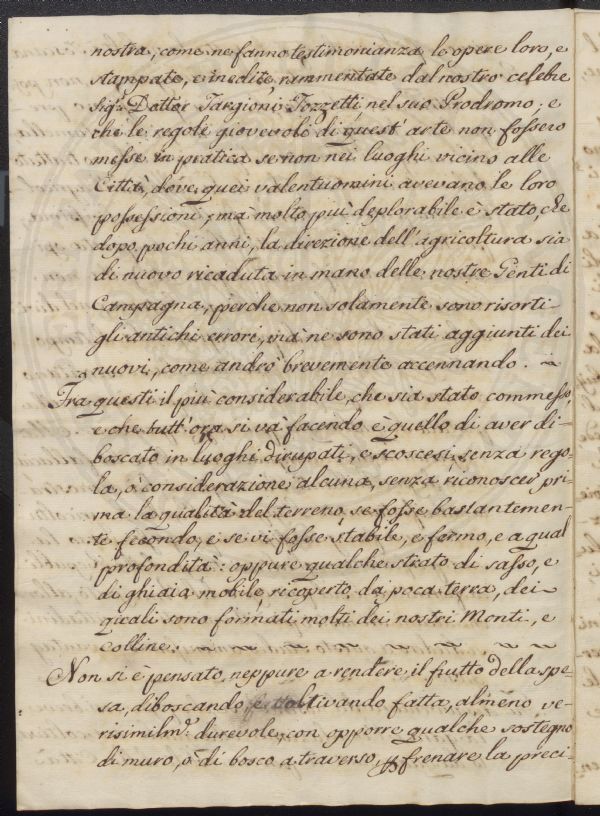 nostra, come ne fanno testimonianza le opere loro, e
stampate, e inedite rammentate dal nostro celebre
Sig.r Dottor Targioni Tozzetti nel suo Prodromo; e
che le regole giovevoli di quest' arte non fossero
messe in pratica se non nei luoghi vicino alle
Città, dove quei valentuomini avevano le loro
possessioni; mà molto più deplorabile è stato, che
dopo pochi anni, la direzione dell' agricoltura sia
di nuovo ricaduta in mano delle nostre Genti di
Campagna, perche non solamente sono risorti
gli antichi errori, mà ne sono stati aggiunti dei
nuovi, come andrò brevemente accennando.
Frà questi il più considerabile, che sia stato commesso,
e che tutt' ora si và facendo è quello di aver di-
boscato in luoghi dirupati, e scoscesi, senza rego-
la, ò considerazione alcuna, senza riconoscer pri-
ma la qualità del terreno, se fosse bastantemen-
te fecondo, e se vi fosse stabile, e fermo, e a qual
profondità: oppure qualche strato di sasso, e
di ghiaia mobile ricoperto da poca terra, dei
quali sono formati molti dei nostri Monti, e
colline.
Non si è pensato neppure a rendere il frutto della spe-
sa, diboscando, e coltivando fatta, almeno ve-
risimilm.e durevole, con opporre qualche sostegno
di muro, ò di bosco a traverso, per frenare la preci-